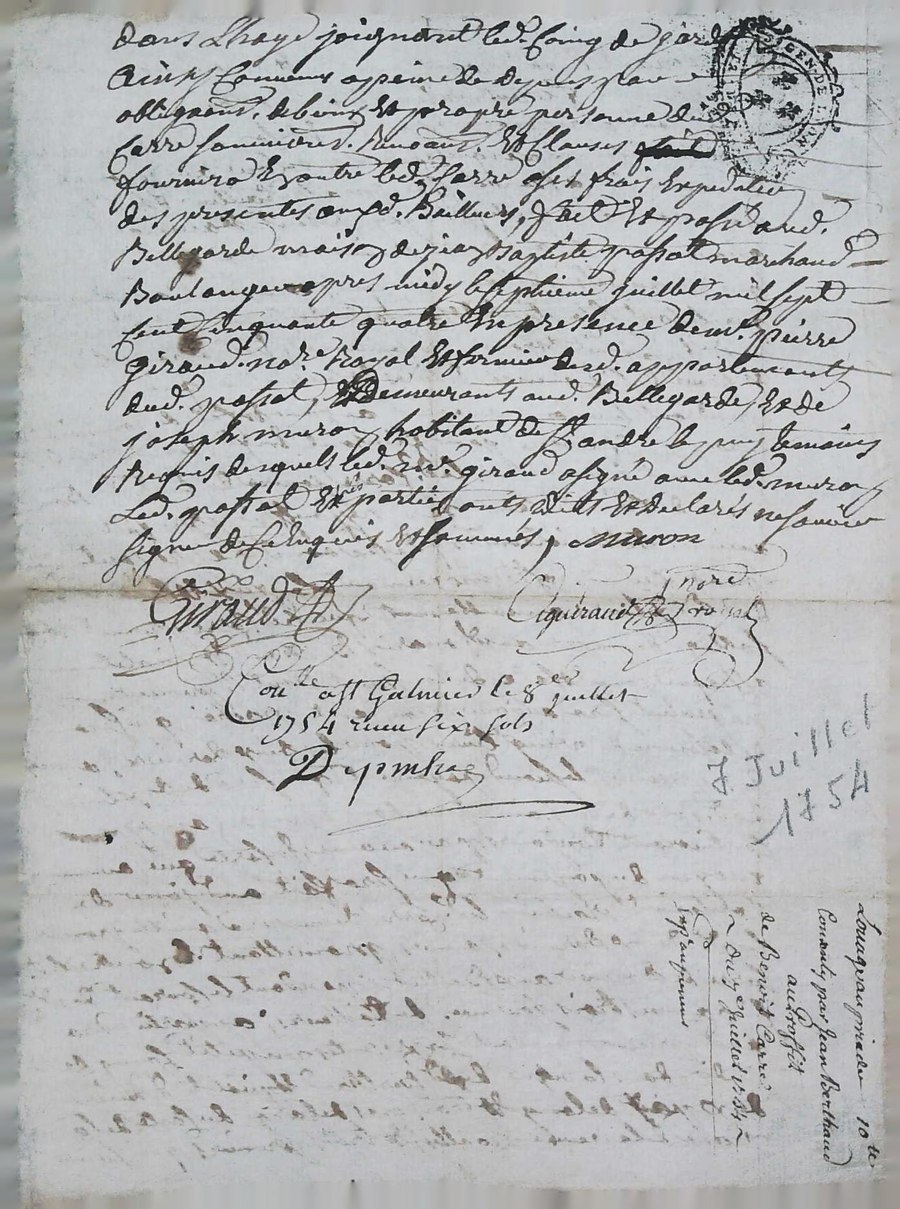 dans Lhaye joignant led. Coing de jard
Ainsy Convenu appeine de depens par
obligaons. de biens Et propre personne dud
Carre soumissions. Renoaons. Et Clauses
fournira Et outre led. Carre ases frais Expedition
des presentes auxd. Bailleurs, fait Et passé aud.
Bellegarde maison de jean Baptiste passat marchand
Boulanger apres midy le septieme juillet mil sept
Cent Cinquante quatre En presence de mr. pierre
giraud no.re Royal Et fermier desd. appartements
dud. passat, Demeurants aud. Bellegarde, Et de
joseph muron habitant de st andre le puy temoins
Requis desquels led. mr. giraud a signé avec led. muron
Led. passat Et les parties onts dit Et declarés ne savoir
signer de Ce Enquis Et sommés, muron
Giraud
Ciquéraud nore royal
Conlle a st Galmier le 8er juillet
1754 receu six sols
7 Juillet
1754
Louage au prix de 10 lt
Consenty par Jean Berthaud
au proffit
de Benoit Carre
du 7e Juillet 1754